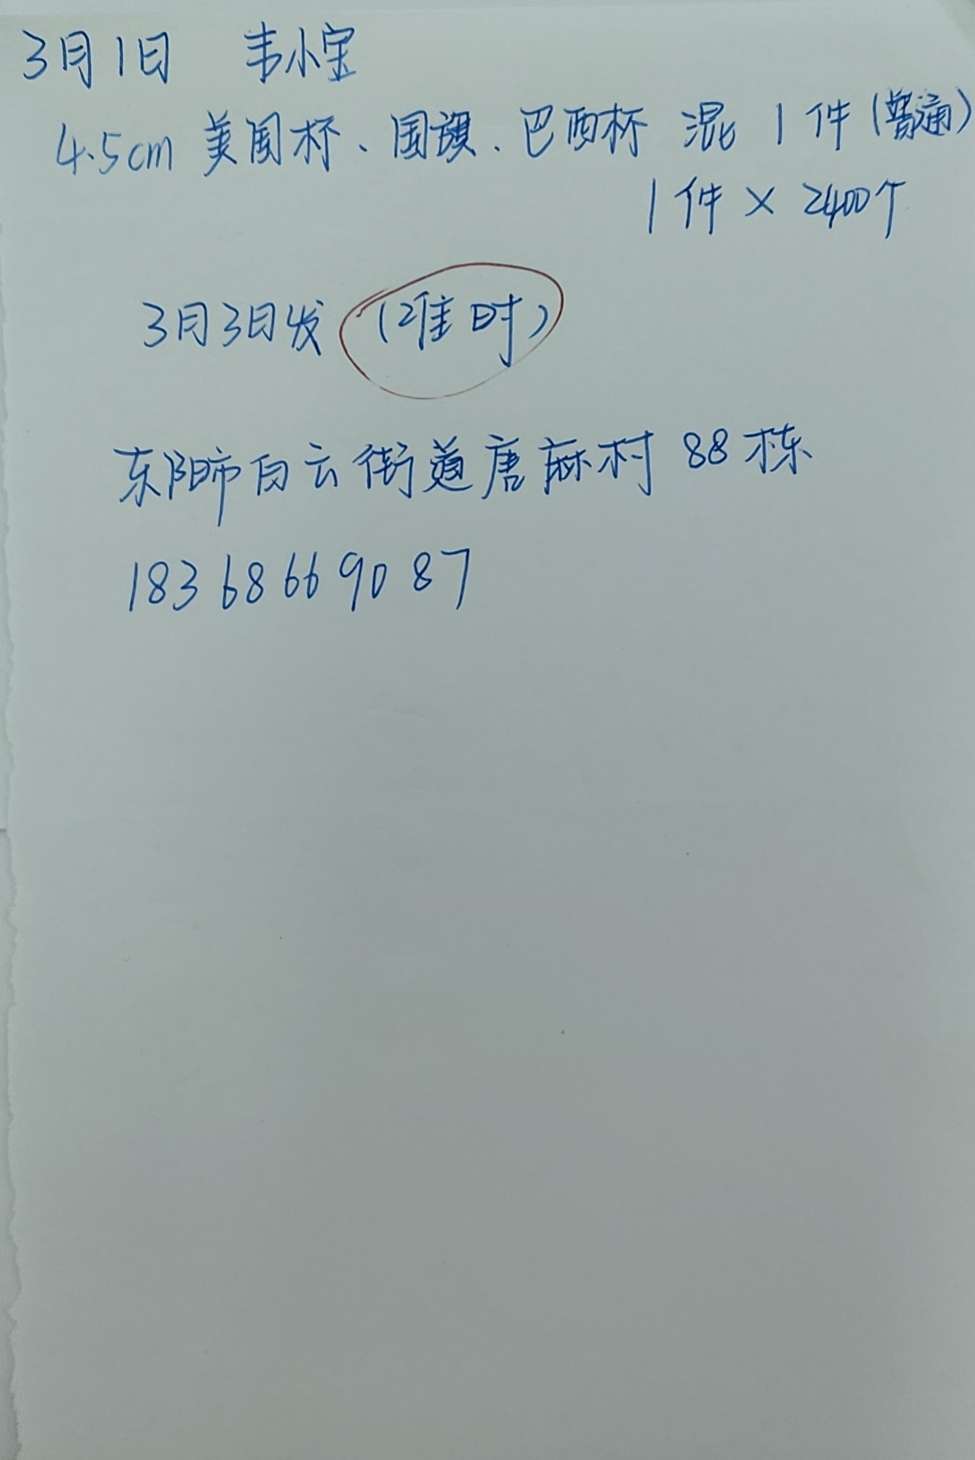 3月1日 韦小宝
4.5cm 美国杯、国旗、巴西杯 混 1件(普通)
1件 × 2400个
3月3日发 (准时)
东阳市白云街道唐麻村 88栋
18368669087